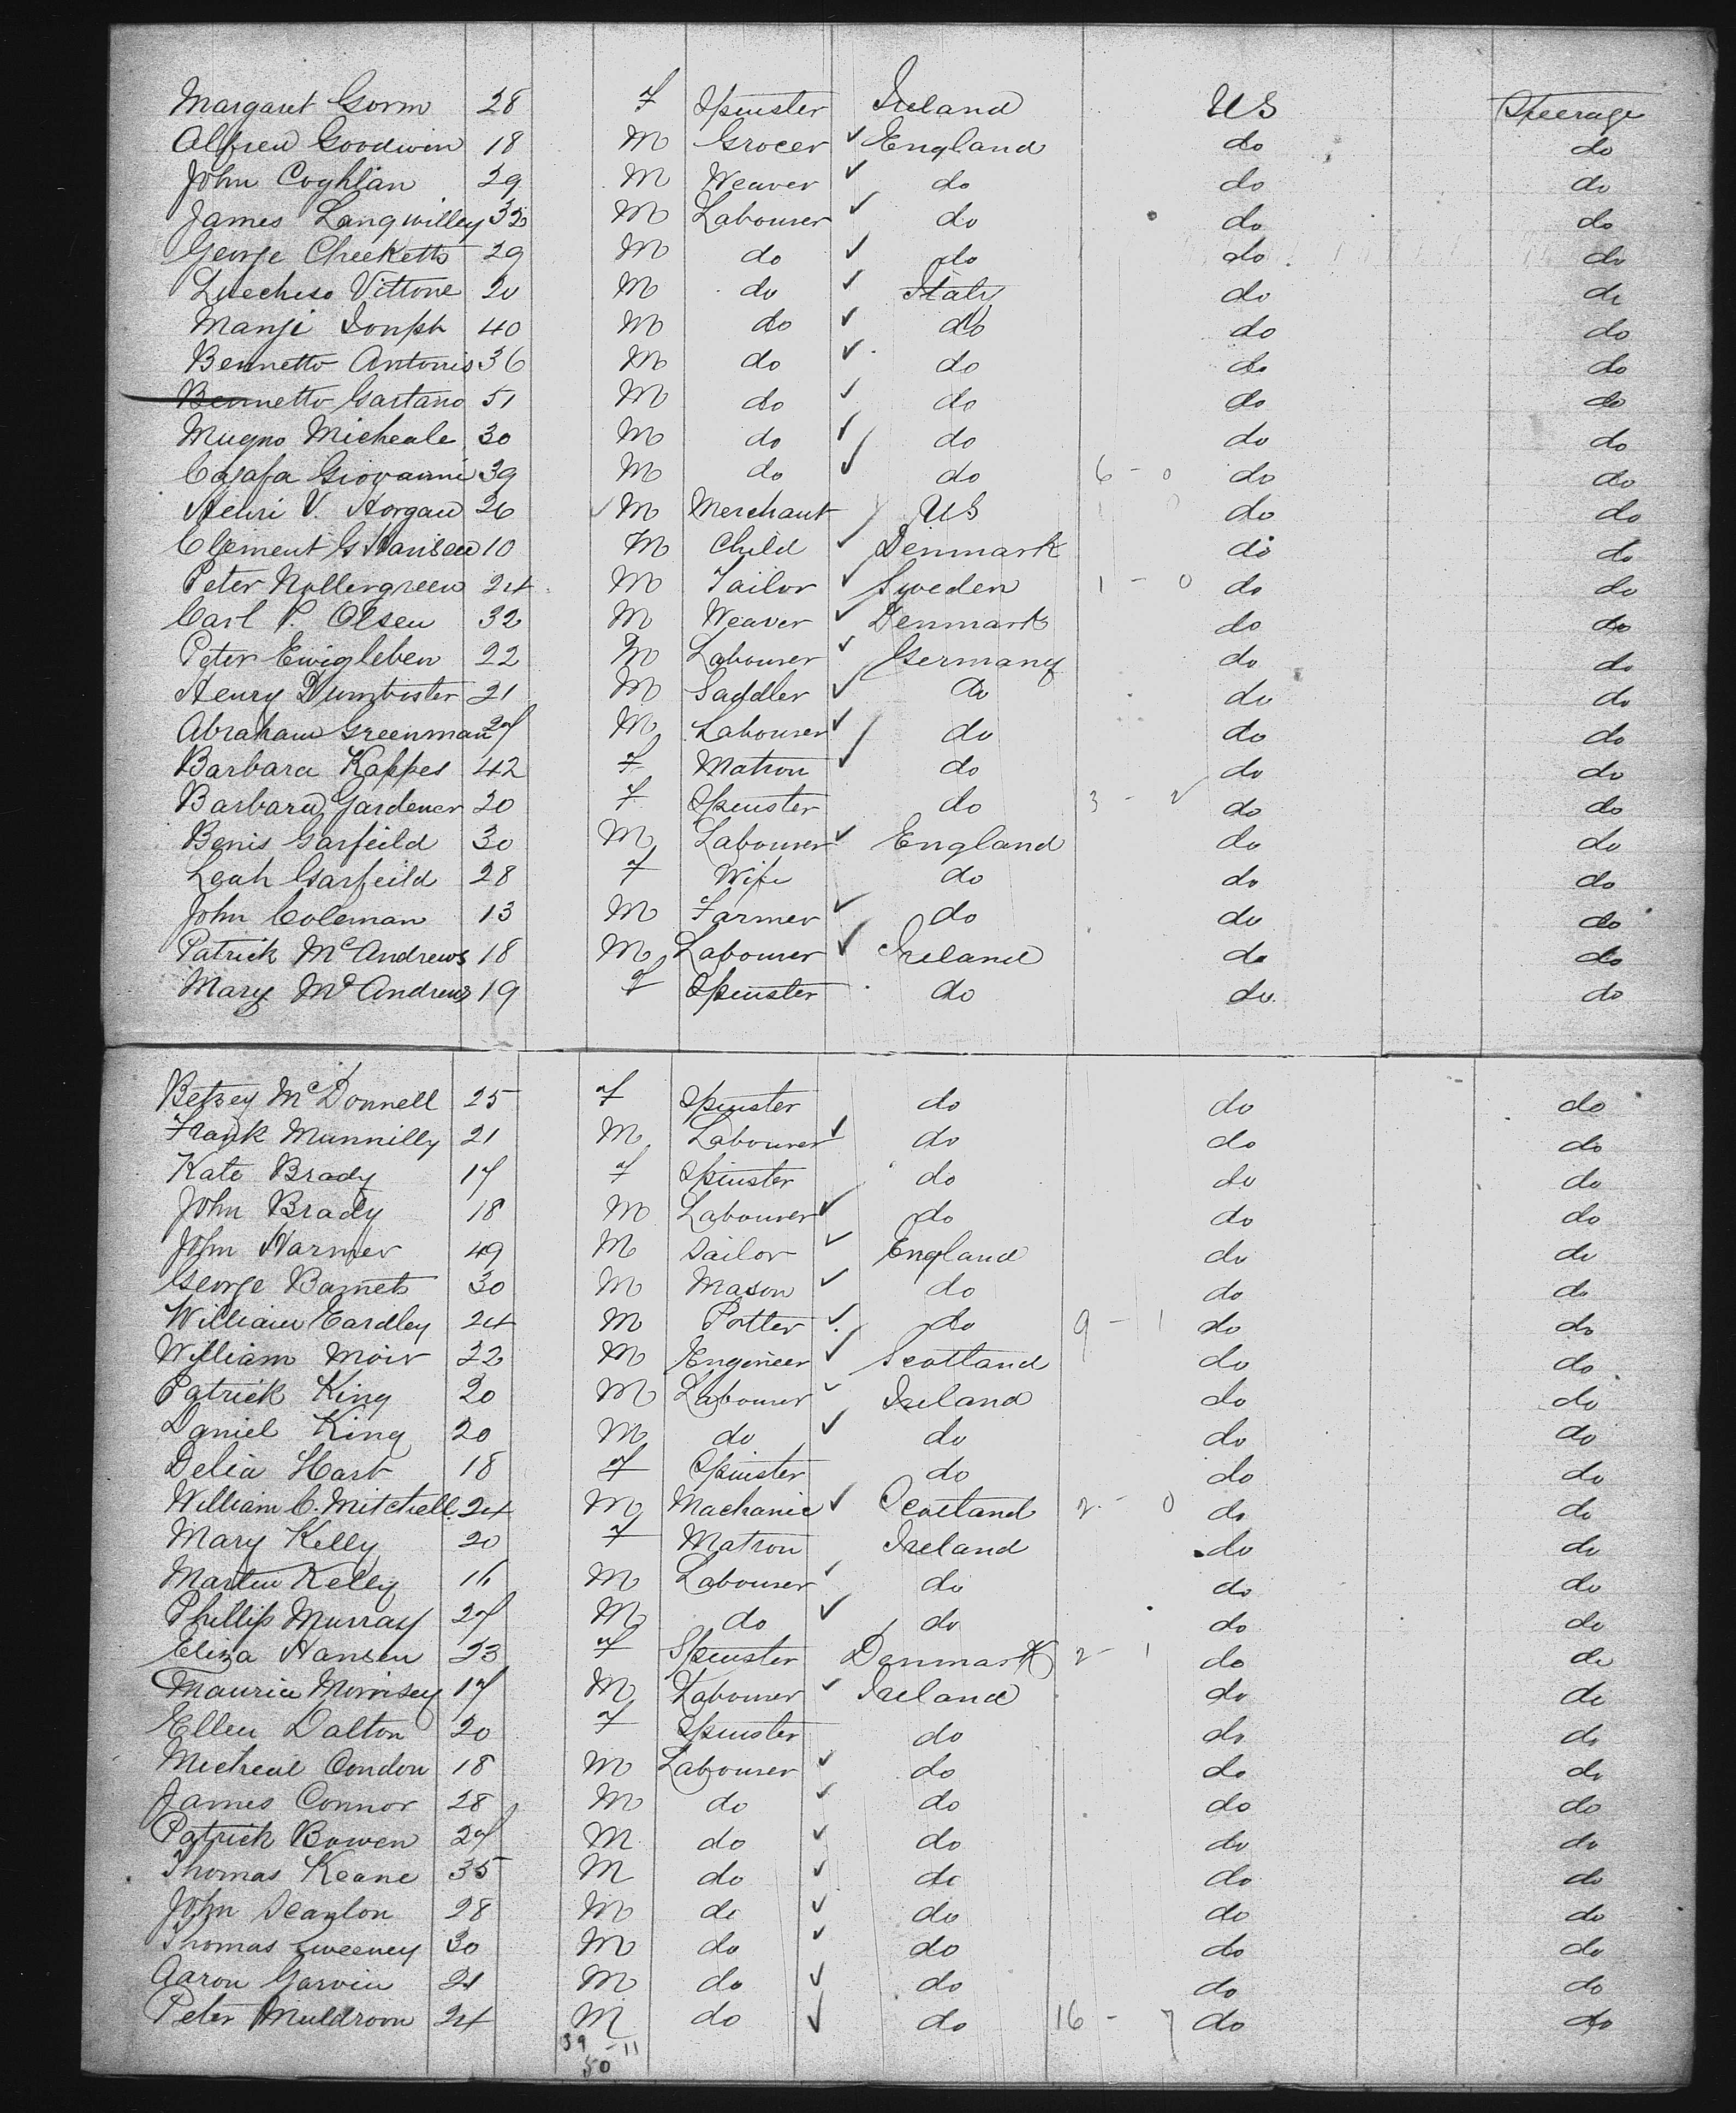 Margaret Gorm 28 F Spinster Ireland US Steerage
Alfred Goodwin 18 M Grocer England do do
John Coghlan 29 M Weaver do do do
James Langwilley 32 M Labourer do do do
George Checketts 29 M do do do do
Luechiso Vittone 20 M do Italy do do
Manji 40 M do do do do
Bennetto Antonis 36 M do do do do
Bennetto Gartano 51 M do do do do
Mugno Micheale 30 M do do do do
Giovanni 39 M do do 6 - 0 do do
Henri V. Horgan 26 M Merchant US do do
Clement G Hansen 10 M Child Denmark do do
Peter Nollergreen 24 M Tailor Sweden 1 - 0 do do
Carl P. Olsen 32 M Weaver Denmark do do
Peter Ewigleben 22 M Labourer Germany do do
Henry Dumbister 21 M Saddler do do do
Abraham Greenman 27 M Labourer do do do
Barbara Kappes 42 F Matron do do do
Barbara Gardener 20 F Spinster do 3 - 2 do do
Benis Garfeild 30 M Labourer England do do
Leah Garfeild 28 F Wife do do do
John Coleman 13 M Farmer do do do
Patrick McAndrews 18 M Labourer Ireland do do
Mary McAndrews 19 F Spinster do do do
Betsey McDonnell 25 F Spinster do do do
Frank Munnilly 21 M Labourer do do do
Kate Brady 17 F Spinster do do do
John Brady 18 M Labourer do do do
John Harmer 49 M Sailor England do do
George Barnets 30 M Mason do do do
William Eardley 24 M Potter do 9 - 1 do do
William Moir 22 M Engineer Scotland do do
Patrick King 20 M Labourer Ireland do do
Daniel King 20 M do do do do
Delia Hart 18 F Spinster do do do
William C. Mitchell 24 M Machanic Scotland 2 - 0 do do
Mary Kelly 20 F Matron Ireland do do
Martin Kelly 16 M Labourer do do do
Phillip Murray 27 M do do do do
Eliza Hansen 23 F Spinster Denmark 2 - 1 do do
Maurice Morrisey 17 M Labourer Ireland do do
Ellen Dalton 20 F Spinster do do do
Micheal Condon 18 M Labourer do do do
James Connor 28 M do do do do
Patrick Bowen 27 M do do do do
Thomas Keane 35 M do do do do
John Scanlon 28 M do do do do
Thomas Sweeney 30 M do do do do
Aaron Garvin 21 M do do do do
Peter Muldroon 24 M do do 16 - 7 do do
39 - 11
50